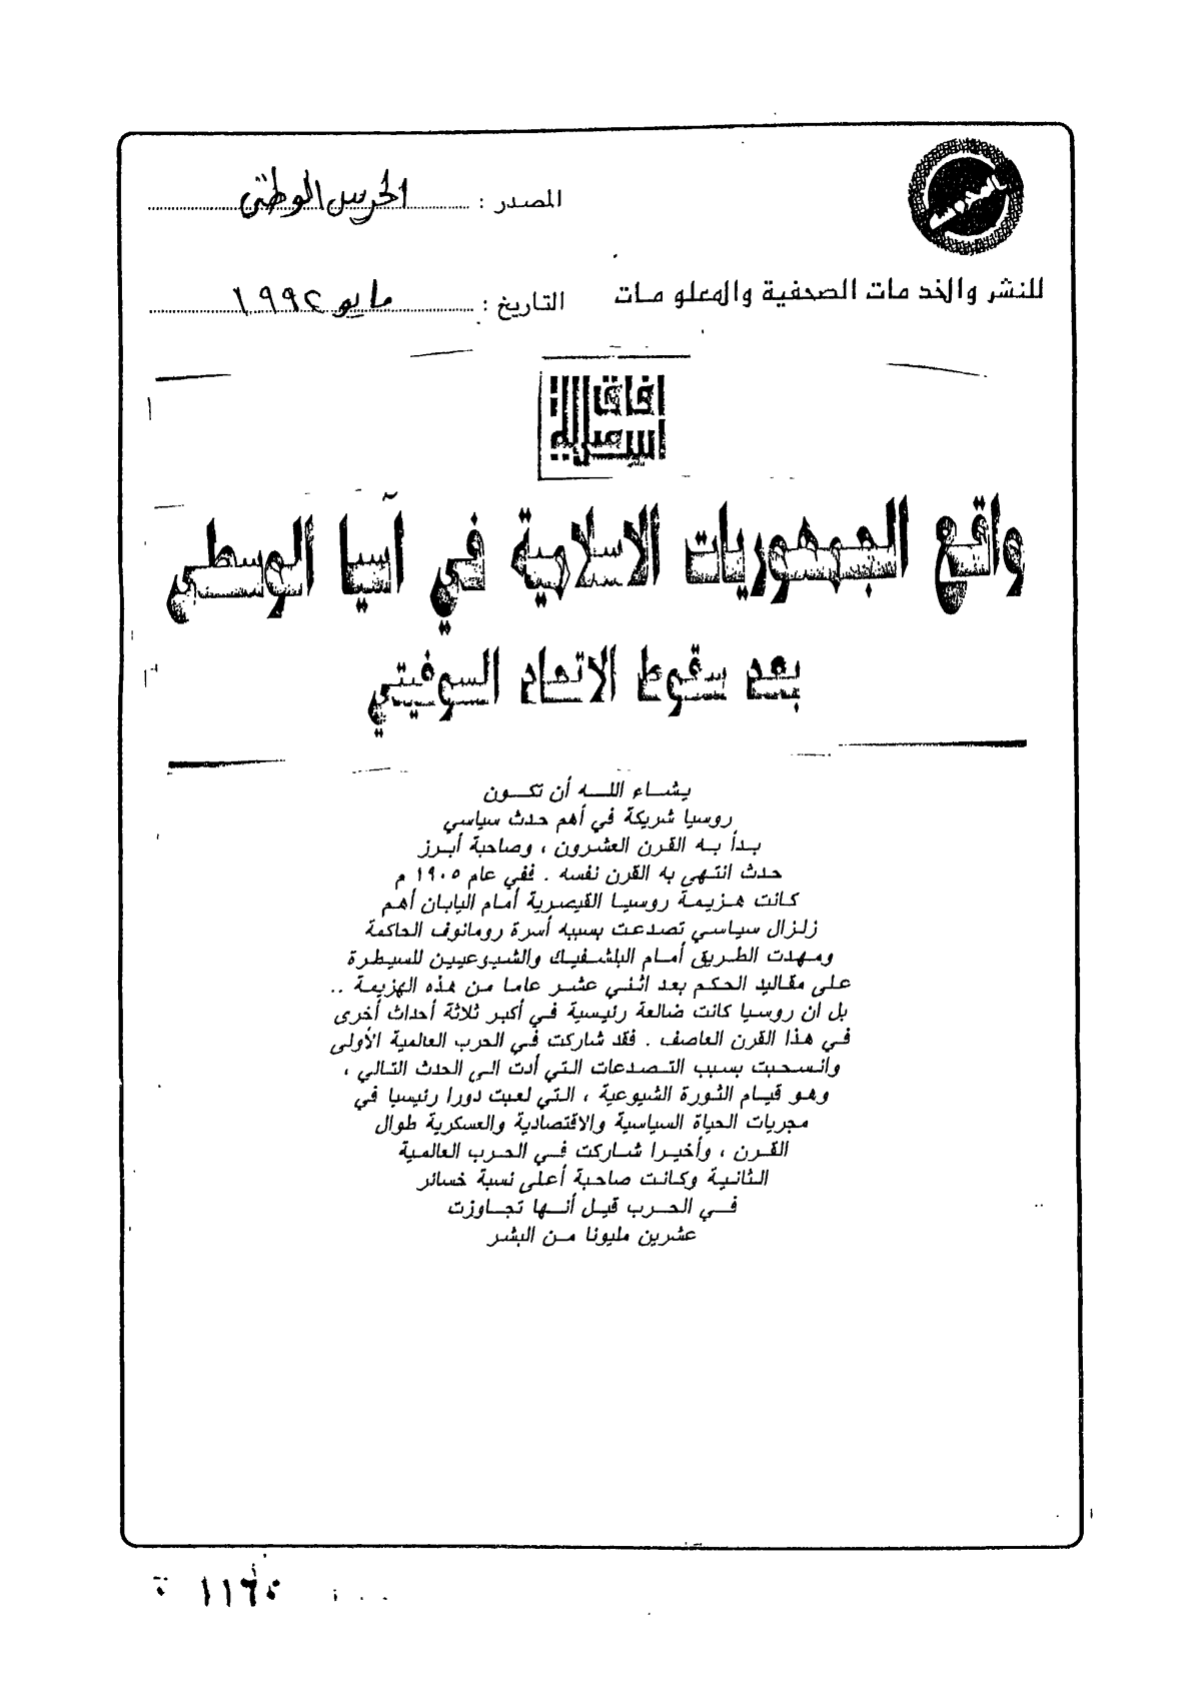 المصدر : الحرس الوطني
للنشر والخدمات الصحفية والمعلومات
التاريخ : مايو ١٩٩٤
افاق
اسلامية
واقع الجمهوريات الاسلامية في آسيا الوسطى
بعد سقوط الاتحاد السوفيتي
يشاء الله أن تكون
روسيا شريكة في أهم حدث سياسي
بدأ به القرن العشرون ، وصاحبة أبرز
حدث انتهى به القرن نفسه . ففي عام ١٩٠٥ م
كانت هزيمة روسيا القيصرية أمام اليابان أهم
زلزال سياسي تصدعت بسببه أسرة رومانوف الحاكمة
ومهدت الطريق أمام البلشفيك والشيوعيين للسيطرة
على مقاليد الحكم بعد اثني عشر عاما من هذه الهزيمة ..
بل ان روسيا كانت ضالعة رئيسية في أكبر ثلاثة أحداث أخرى
في هذا القرن العاصف . فقد شاركت في الحرب العالمية الأولى
وانسحبت بسبب التصدعات التي أدت الى الحدث التالي ،
وهو قيام الثورة الشيوعية ، التي لعبت دورا رئيسيا في
مجريات الحياة السياسية والاقتصادية والعسكرية طوال
القرن ، وأخيرا شاركت في الحرب العالمية
الثانية وكانت صاحبة أعلى نسبة خسائر
في الحرب قيل أنها تجاوزت
عشرين مليونا من البشر